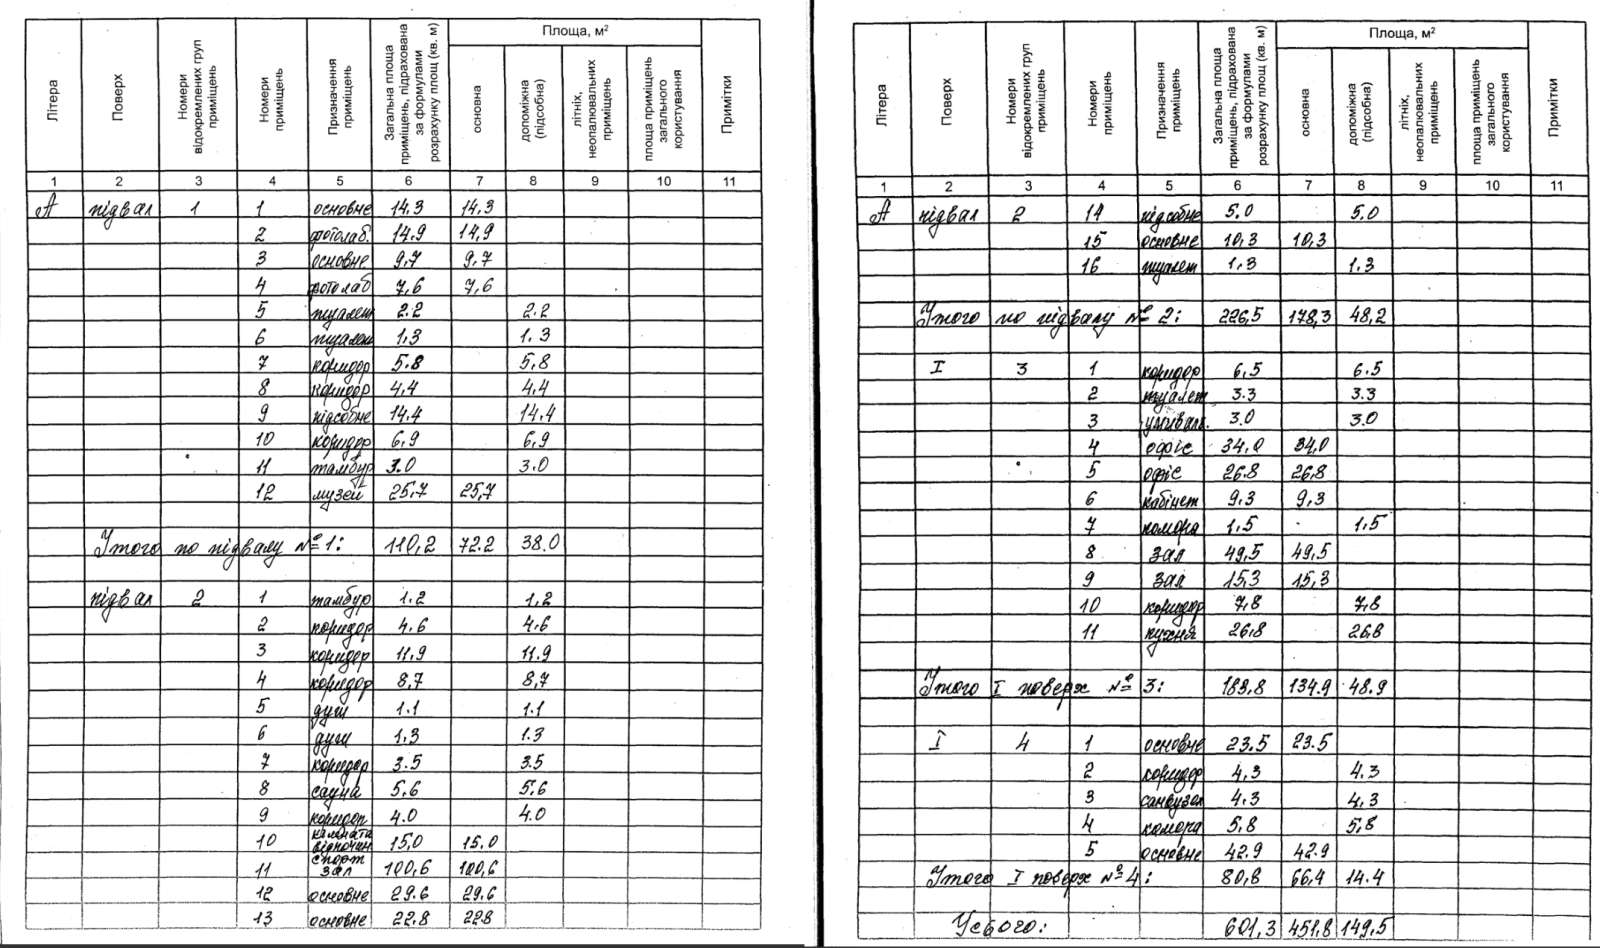 Літера Поверх Номери відокремлених груп приміщень Номери приміщень Призначення приміщень Загальна площа приміщень, підрахована за формулами розрахунку площ (кв. м) Площа, м² основна допоміжна (підсобна) літніх, неопалювальних приміщень площа приміщень загального користування Примітки
1 2 3 4 5 6 7 8 9 10 11
А підвал 1 1 основне 14,3 14,3
2 фотолаб. 14.9 14,9
3 основне 9,7 9,7
4 фотолаб 7,6 7,6
5 туалет 2.2 2.2
6 туалет 1,3 1.3
7 коридор 5.8 5,8
8 коридор 4,4 4,4
9 підсобне 14,4 14.4
10 коридор 6,9 6,9
11 тамбур 3.0 3.0
12 музей 25,7 25,7
Ітого по підвалу №1: 110,2 72.2 38.0
підвал 2 1 тамбур 1.2 1,2
2 коридор 4.6 4.6
3 коридор 11,9 11.9
4 коридор 8,7 8,7
5 душ 1.1 1.1
6 душ 1,3 1.3
7 коридор 3.5 3.5
8 сауна 5,6 5,6
9 коридор 4.0 4.0
10 кімната відпочин 15,0 15.0
11 спорт зал 100,6 100,6
12 основне 29.6 29.6
13 основне 22.8 22.8
Літера Поверх Номери відокремлених груп приміщень Номери приміщень Призначення приміщень Загальна площа приміщень, підрахована за формулами розрахунку площ (кв. м) Площа, м² основна допоміжна (підсобна) літніх, неопалювальних приміщень площа приміщень загального користування Примітки
1 2 3 4 5 6 7 8 9 10 11
А підвал 2 14 підсобне 5.0 5.0
15 основне 10,3 10,3
16 туалет 1.3 1.3
Ітого по підвалу № 2: 226,5 178,3 48,2
I 3 1 коридор 6,5 6.5
2 туалет 3.3 3.3
3 умивал. 3.0 3.0
4 офіс 34,0 34,0
5 офіс 26.8 26,8
6 кабінет 9.3 9,3
7 комора 1,5 1,5
8 зал 49,5 49,5
9 зал 15,3 15,3
10 коридор 7,8 7,8
11 кухня 26,8 26,8
Ітого I поверх № 3: 183.8 134.9 48.9
I 4 1 основне 23.5 23.5
2 коридор 4,3 4.3
3 санвузол 4.3 4,3
4 комора 5,8 5,8
5 основне 42.9 42.9
Ітого I поверх №4: 80,8 66,4 14.4
Усього: 601,3 451,8 149,5